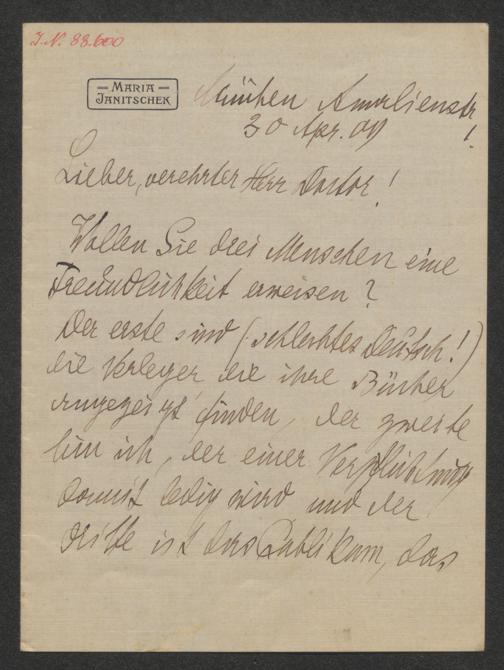 J.N. 88.600
MARIA
JANITSCHEK
München Amalienstr
30 Apr. 09 !
Lieber, verehrter Herr Doctor!
Wollen Sie drei Menschen eine
Freundlichkeit erweisen?
Der erste sind (schlechtes Deutsch!)
die Verleger die ihre Bücher
angezeigt finden, der zweite
bin ich, der einer Verpflichtung
damit ledig wird und der
dritte ist das Publikum, das